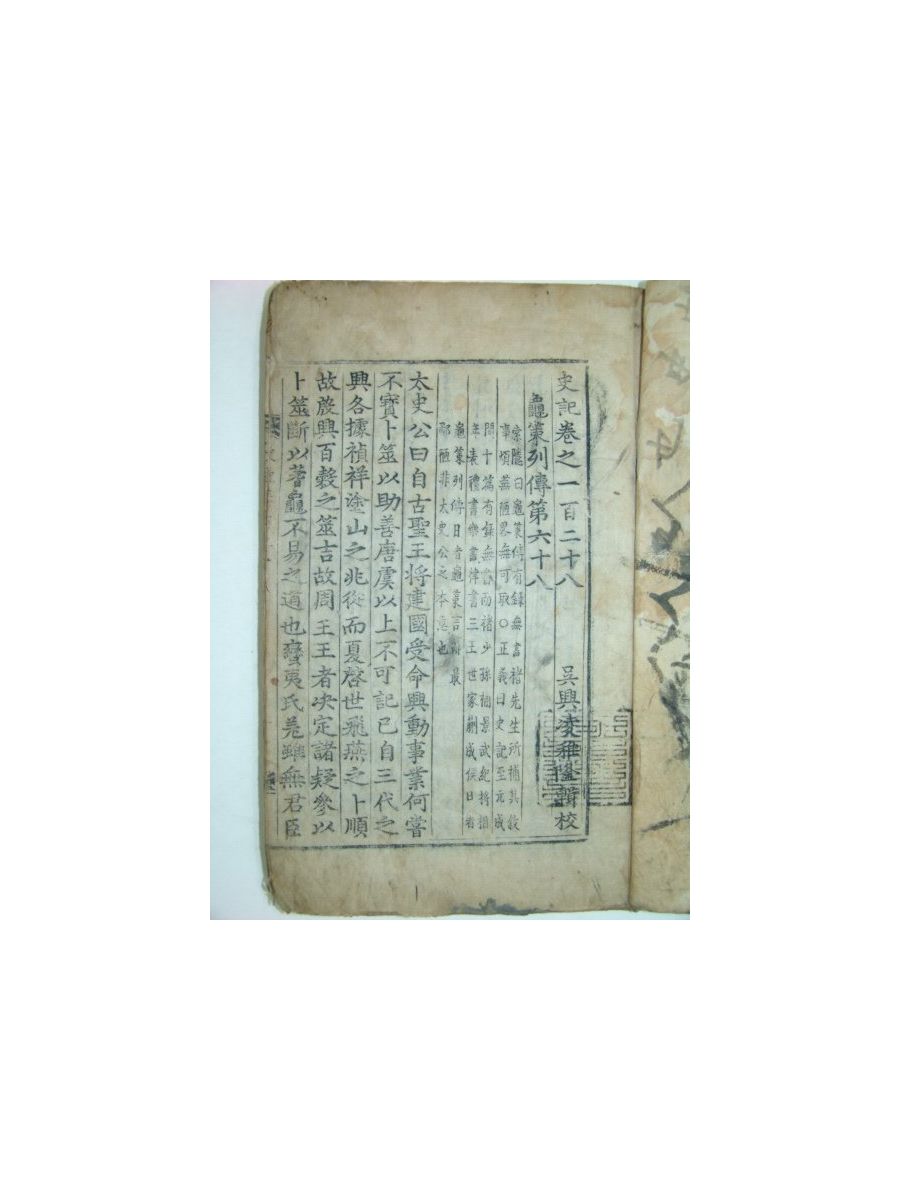 史記卷之一百二十八
吳興凌稚隆輯校
龜策列傳第六十八
索隱曰龜策傳有錄無書褚先生所補其叙
事煩蕪陋畧無可取○正義曰史記至元成
間十篇有錄無書而褚少孫補景武紀將相
年表禮書樂書律書三王世家蒯成侯日者
龜策列傳日者龜策言辭最
鄙陋非太史公之本意也
太史公曰自古聖王將建國受命興動事業何嘗
不寶卜筮以助善唐虞以上不可記已自三代之
興各據禎祥塗山之兆從而夏啓世飛燕之卜順
故殷興百穀之筮吉故周王王者决定諸疑參以
卜筮斷以蓍龜不易之道也蠻夷氐羌雖無君臣